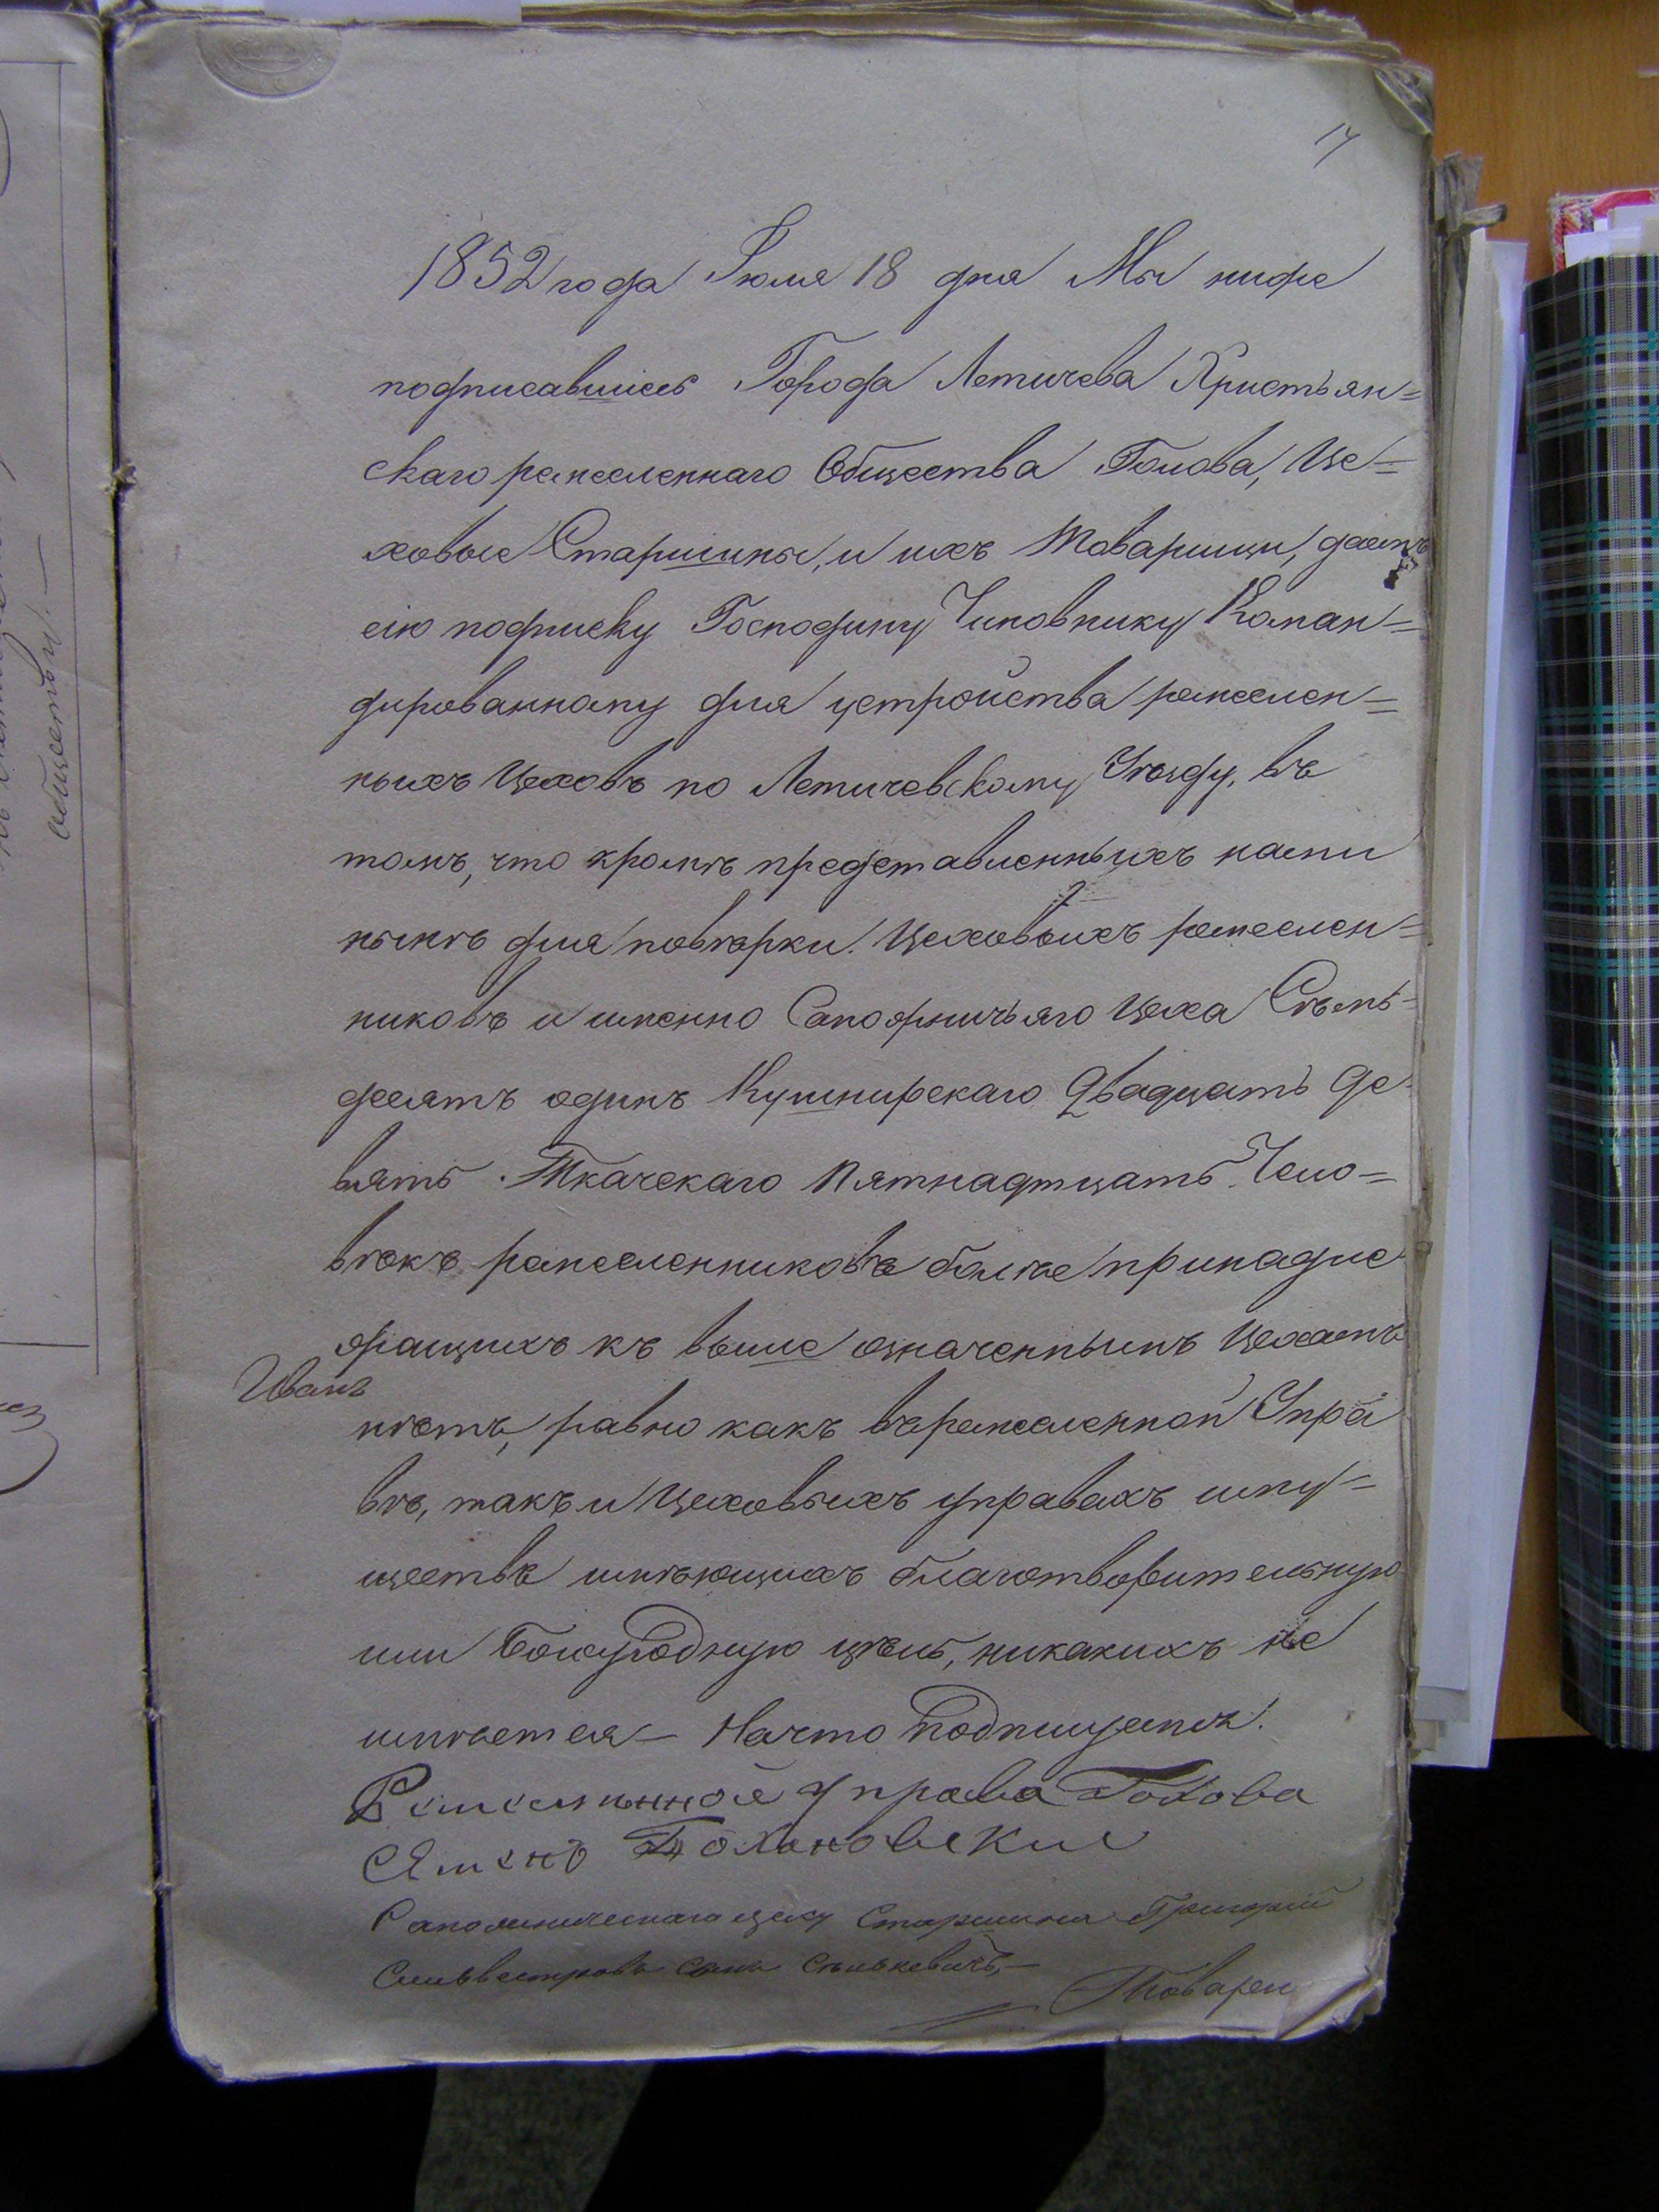 17
1852 года Іюля 18 дня Мы ниже
подписавшіесь Города Летичева Христьян=
скаго ремесленнаго Общества Голова, Це=
ховые Старшины, и ихъ Товарищи, даемъ
сію подписку Господину Чиновнику Коман=
дированному для устройства ремеслен=
ныхъ Цеховъ по Летичевскому Уѣзду, въ
томъ, что кромѣ представленныхъ нами
нынѣ для повѣрки Цеховыхъ ремеслен=
никовъ и именно Сапожничьяго Цеха Сѣмь=
десятъ одинъ Кушнирскаго Двадцать де
вять Ткачскаго Пятнадтцать Чело=
вѣкъ ремесленниковъ болѣе принадле
жащихъ къ выше означеннымъ Цехамъ
Иванъ
нѣтъ, равно какъ въ ремесленной Упра
вѣ, такъ и Цеховыхъ управахъ иму=
ществъ имѣющихъ благотворительную
или Богоугодную цѣль, никакихъ не
имѣется – На что подпишемся.
Ремесленной Управа Голова
Семенъ
Сапожническаго цеху Старшина Григорій
Сильвестровъ сынъ Сѣнькевичъ, –
Товарещ
обществы. –